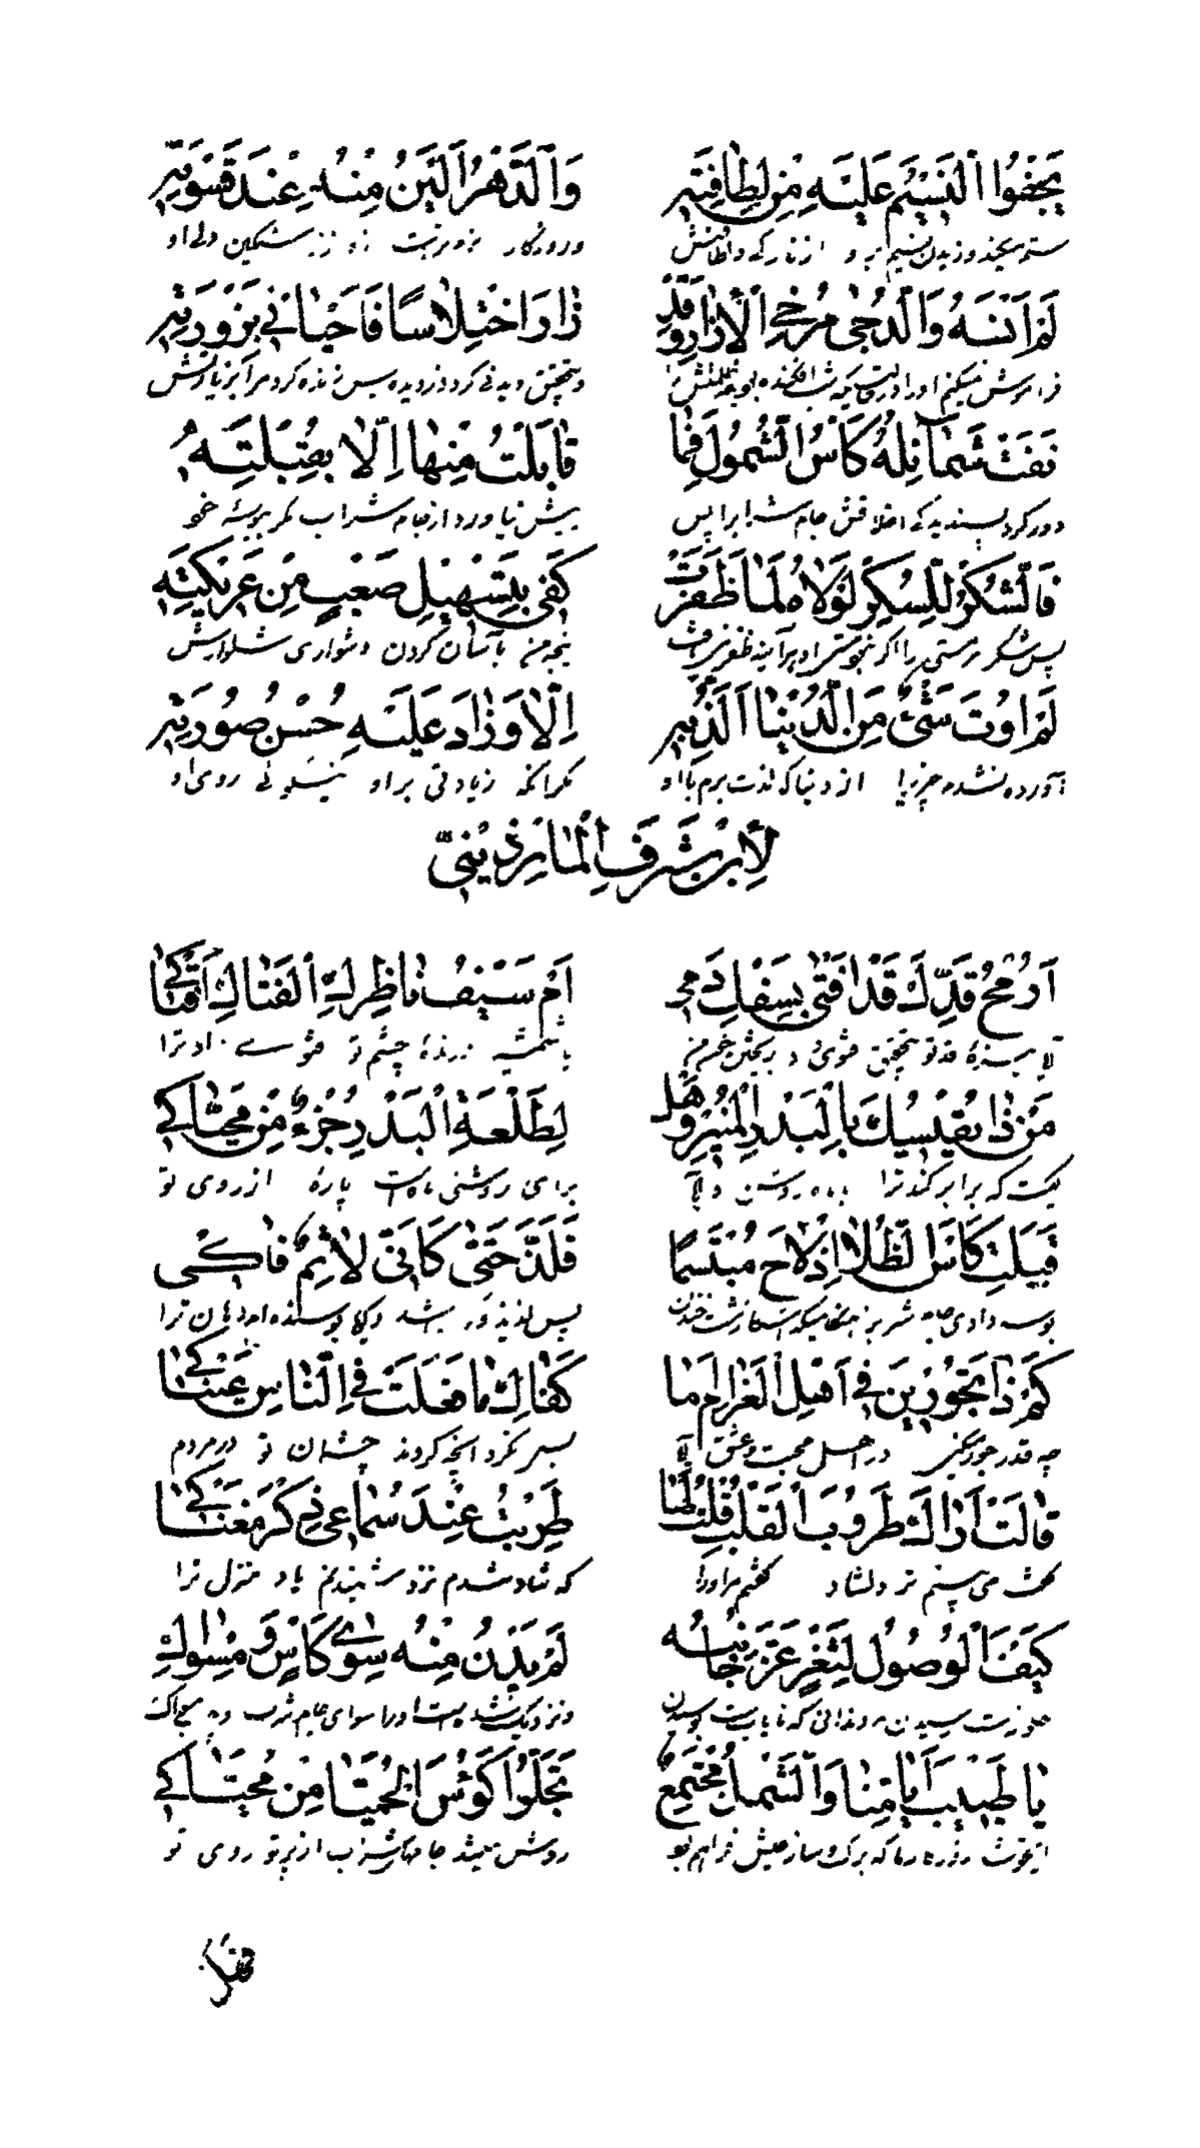 يَجْفُوا النَّسِيْمُ عَلَيْهِ مِنْ لِطَافَتِهِ وَالدَّهْرُ اَلْيَنُ مِنْهُ عِنْدَ قَسْوَتِهِ
ستم میکند وزیدن نسیم بر و از نازکی و لطافتش و روزگار نرم‌تر است نزد سنگین دلی او
لَمْ اَنْسَهُ وَالدُّجٰى مُرْخِي الْاِزَارِ وَقَدْ زَارَ اخْتِلَاسًا فَاَحْيَانِيْ بِزَوْرَتِهِ
فراموش نمیکنم او را و بتحقیق دیدنی کرد دزدیده پس زنده کرد مرا بزیارتش
نَفَتْ شَمَآئِلُهُ كَأْسَ الشَّمُوْلِ فَمَا قَابَلْتُ مِنْهَا اِلَّا بِقُبْلَتِهِ
دور کرد پسندیدگی اخلاقش جام شراب را پس پیش نیاورد از جام شراب مگر بوسه خود
فَالشُّكْرُ لِلسُّكْرِ لَوْلَاهُ لَمَا ظَفِرَتْ كَفِّيْ بِتَسْهِيْلِ صَعْبٍ مِنْ عَرِيْكَتِهِ
پس شکر مر مستی را اگر نبودی هر آینه ظفر نیافت پنجه من بآسان کردن دشواری شلوارش
لَمْ اُوْتَ شَيْءٌ مِنَ الدُّنْيَا اَلَذُّ بِهِ اِلَّا وَزَادَ عَلَيْهِ حُسْنُ صُوْرَتِهِ
آورده نشدم چیزیرا از دنیا که لذت برم با او مگر آنکه زیادتی بر او نیکوئی روی او
لِابْنِ شَرَفِ الْمَارِدِيْنِيِّ
اَرُمْحُ قَدِّكِ قَدْ اَفْتٰى بِسَفْكِ دَمِيْ اَمْ سَيْفُ نَاظِرِكِ الْفَتَّاكِ اَفْتَاكِيْ
آیا نیزهٔ قد تو بتحقیق فتوی داد بریختن خون من یا شمشیر درندهٔ چشم تو فتوی داد ترا
مَنْ ذَا يَقِيْسُكَ بِالْبَدْرِ الْمُنِيْرِ وَهَلْ لِطَلْعَةِ الْبَدْرِ جُزْءٌ مِنْ مُحَيَّاكِيْ
کیست که برابر کند ترا بماه روشن و آیا برای روشنی ماه است پارهٔ از روی تو
قَبَّلْتُ كَأْسَ الطِّلَا اِذْ لَاحَ مُبْتَسِمًا فَلَذَّ حَتّٰى كَاَنِّيْ لَاثِمٌ فَاكِيْ
پس لذیذ شد گویا بوسنده ام دهان ترا
كَمْ ذَا تَجُوْرِيْنَ فِيْ اَهْلِ الْغَرَامِ اَمَا كَفَاكِ مَا فَعَلَتْ فِي النَّاسِ عَيْنَاكِيْ
چه قدر جور میکنی در اهل محبت و عشق آیا بس نکرد آنچه کردند چشمان تو در مردم
قَالَتْ اَرَاكَ طَرُوْبَ الْقَلْبِ قُلْتُ لَهَا طَرِبْتُ عِنْدَ سَمَاعِيْ ذِكْرَ مَغْنَاكِيْ
گفت می بینم تو دلشاد گفتم مر اورا که شاد شدم نزد شنیدنم یاد منزل ترا
كَيْفَ الْوُصُوْلُ لِثَغْرٍ عَزَّ جَانِبُهُ لَمْ يَدْنُ مِنْهُ سِوٰى كَأْسٍ وَمِسْوَاكِ
چگونه است رسیدن بدندانی که نایاب است و نزدیک نشده است اورا سوای جام شراب و مسواک
يَا طِيْبَ اَيَّامِنَا وَالشَّمْلُ مُجْتَمِعٌ تَجْلُوْا كُؤُسُ الْحُمَيَّا مِنْ مُحَيَّاكِيْ
ای خوش روزهای ما که برگ و ساز عیش فراهم بود روشن میشد جامهای شراب از پرتو روی تو